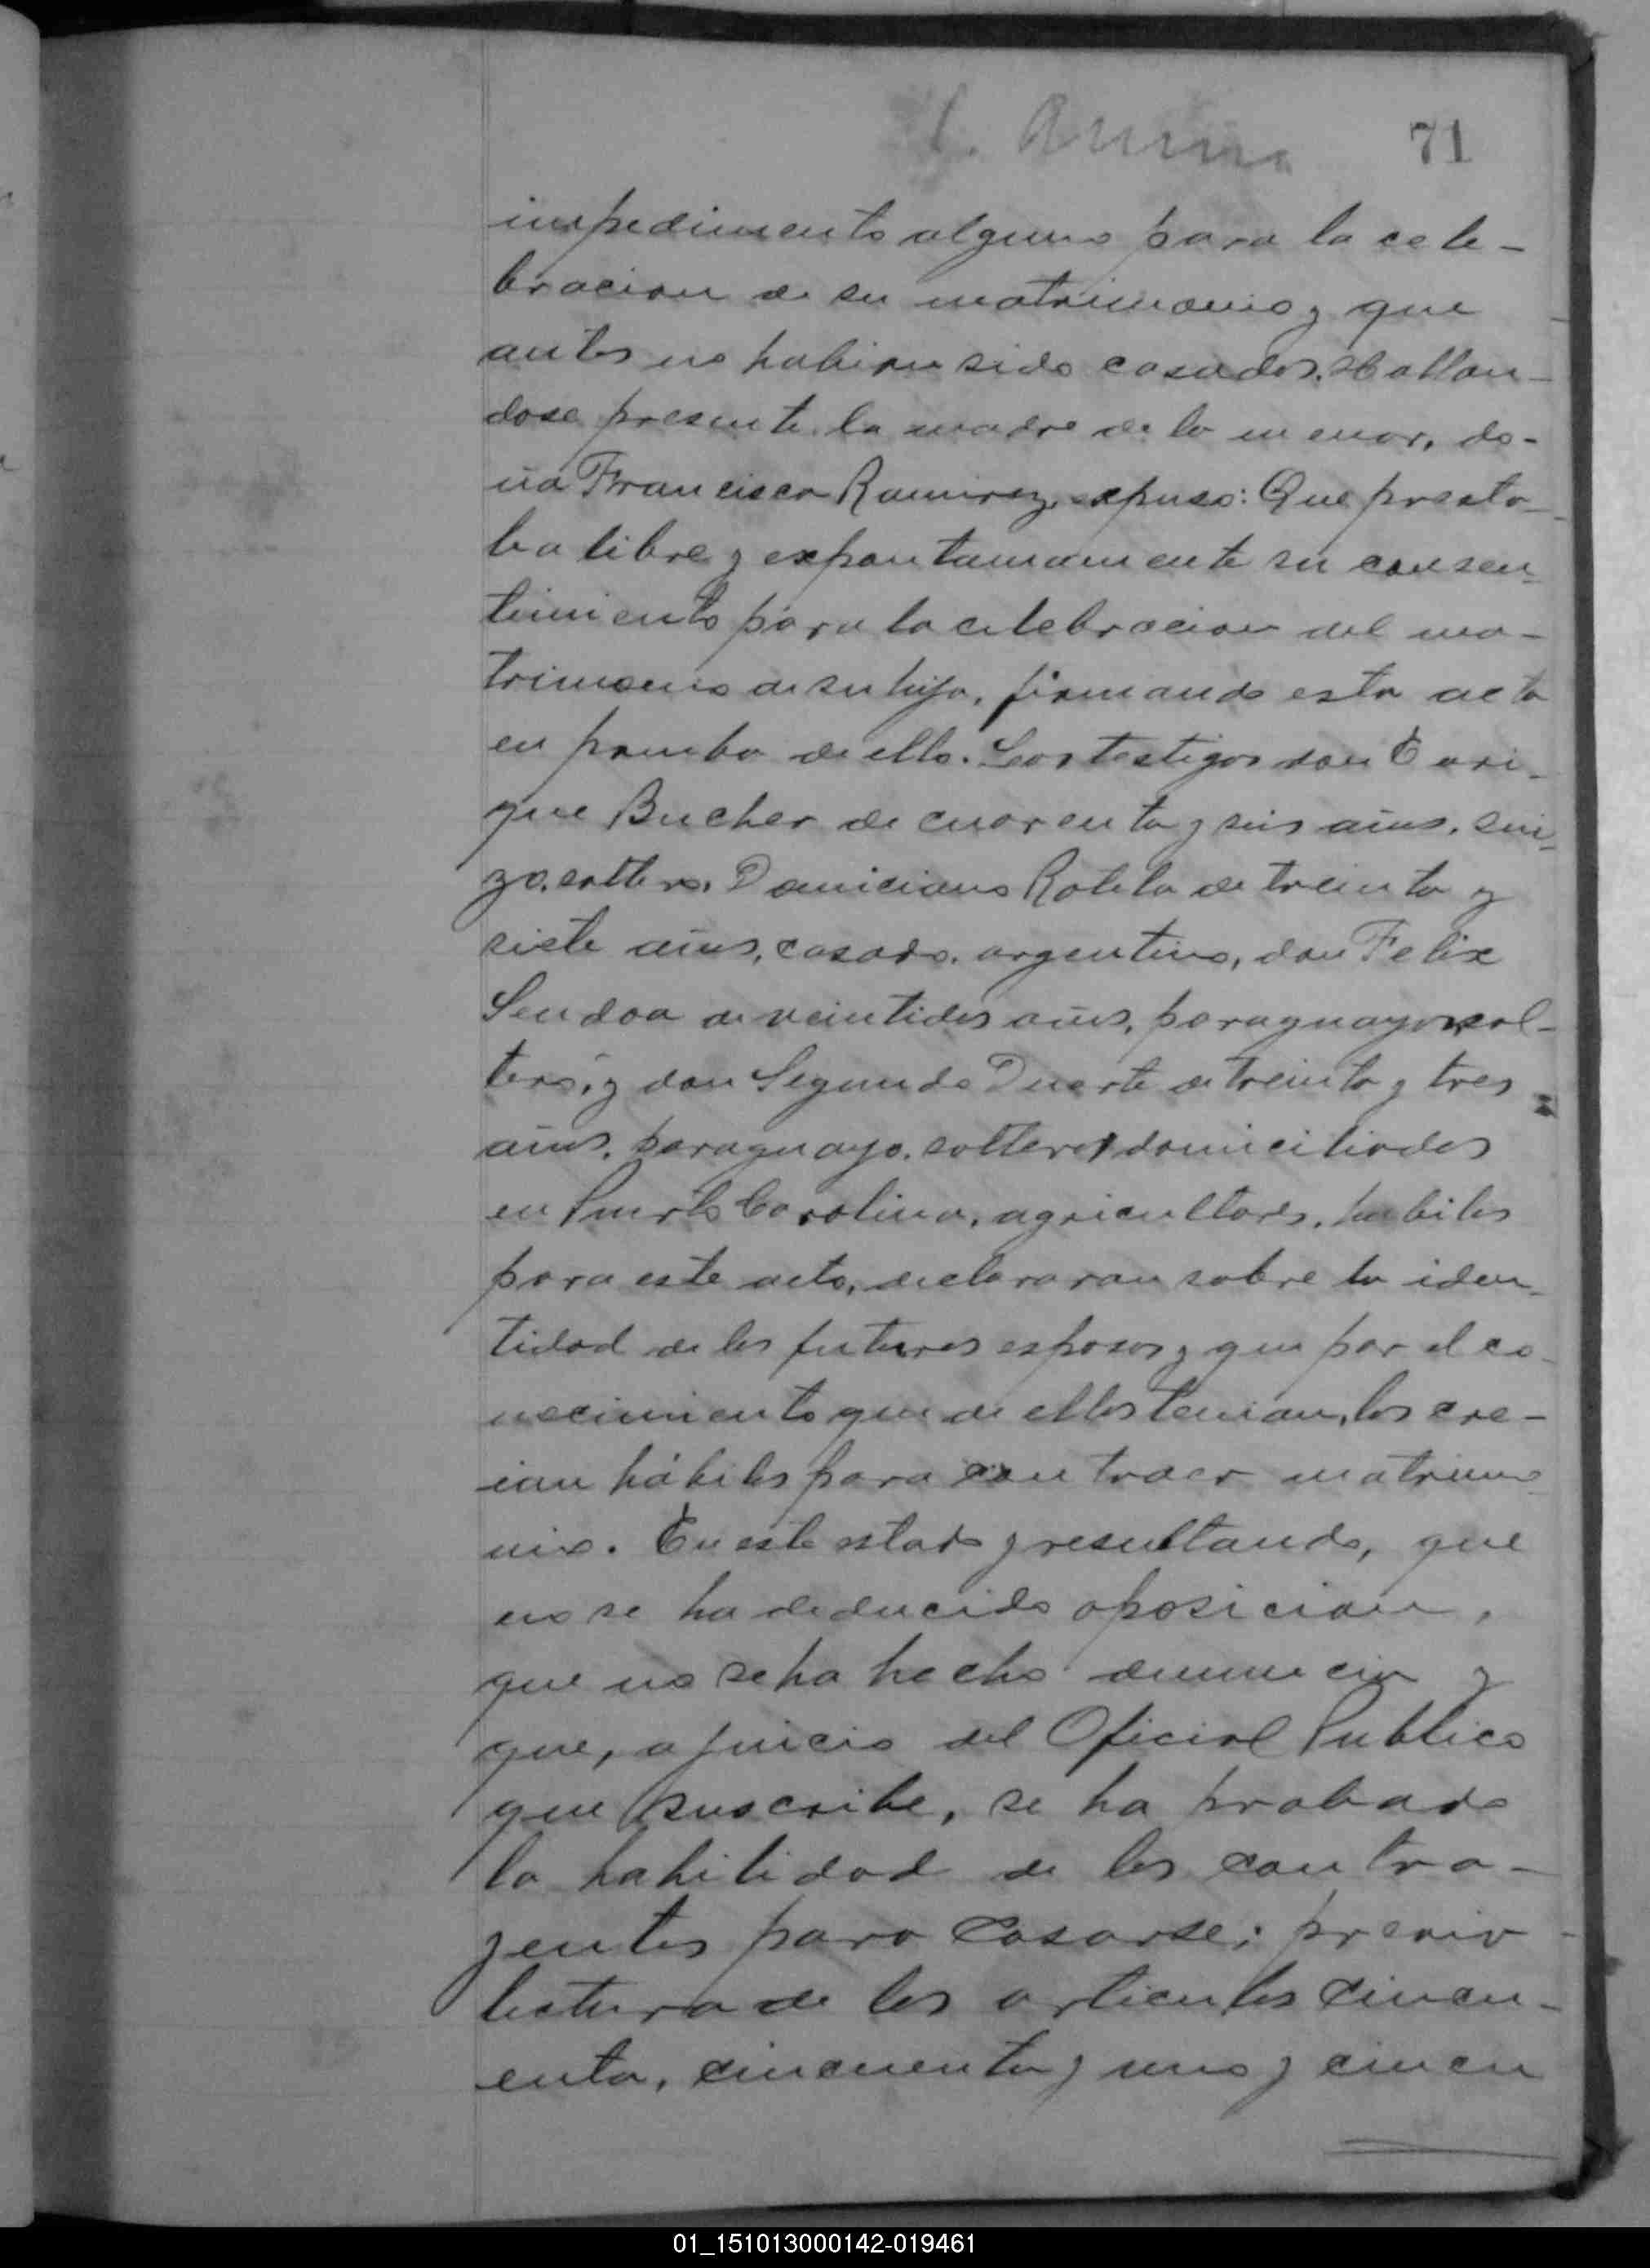 71
impedimento alguno para la cele-
bracion de su matrimonio y que
antes no habian sido casados. Hallan-
dose presente la madre de la menor, do-
ña Francisca Ramirez, expuso: Que presta-
ba libre y expontaneamente su consen-
timiento para la celebracion del ma-
trimonio de su hija, firmando esta acta
en prueba de ello. Los testigos don Enri-
que Bucher de cuarenta y seis años, sui-
zo, soltero, Domiciano Rolela de treinta y
siete años, casado, argentino, don Felix
Sendoa de veintidos años, paraguayo, sol-
tero, y don Segundo Duarte de treinta y tres
años, paraguayo, soltero, domiciliados
en Puerto Carolina, agricultores, habiles
para este acto, declararan sobre la iden-
tidad de los futuros esposos y que por el co-
nocimiento que de ellos tenian, los cre-
ian hábiles para contraer matrimo-
nio. En este estado y resultando, que
no se ha deducido oposicion,
que no se ha hecho denuncia y
que, a juicio del Oficial Publico
que suscribe, se ha probado
la habilidad de los contra-
yentes para casarse; previa
lectura de los articulos cincu-
enta, cincuenta y uno y cincu
01_151013000142-019461